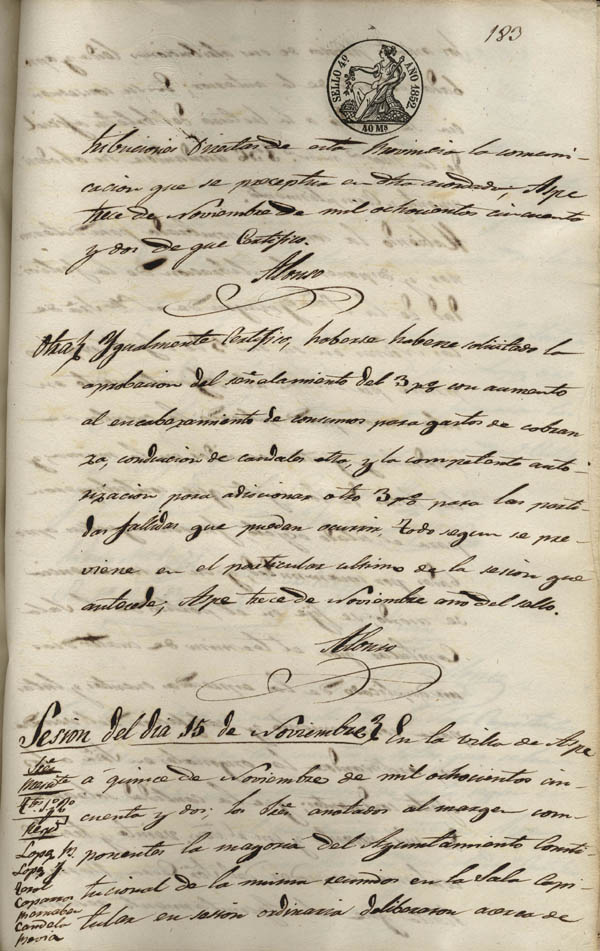 183
SELLO 4º AÑO 1852.
40 Ms
tribuciones Directas de esta Provincia la comuni
cacion que se preceptua en dho acordado, Aspe
trece de Noviembre de mil ochocientos cincuenta
y dos de que Certifico.
Alonso
Otra} Ygualmente Certifico, haberse haberse solicitado la
aprobacion del señalamiento del 3 p% con aumento
al encabezamiento de consumos para gastos de cobran
za, conduccion de caudales etra, y la competente auto
rizacion para adicionar otro 3 p% para las parti
das fallidas que puedan ocurrir, todo segun se pre
viene en el particular ultimo de la sesion que
antecede, Aspe trece de Noviembre año del sello.
Alonso
Sesion del dia 15 de Noviembre} En la villa de Aspe
a quince de Noviembre de mil ochocientos cin
cuenta y dos, los Sres anotados al margen com
ponentes la mayoria del Ayuntamiento Consti
tucional de la misma reunidos en la Sala Capi
tular en sesion ordinaria deliberaron acerca de
Sres
Presidte
Regs
Lopez
Lopez
Caparros
Candela